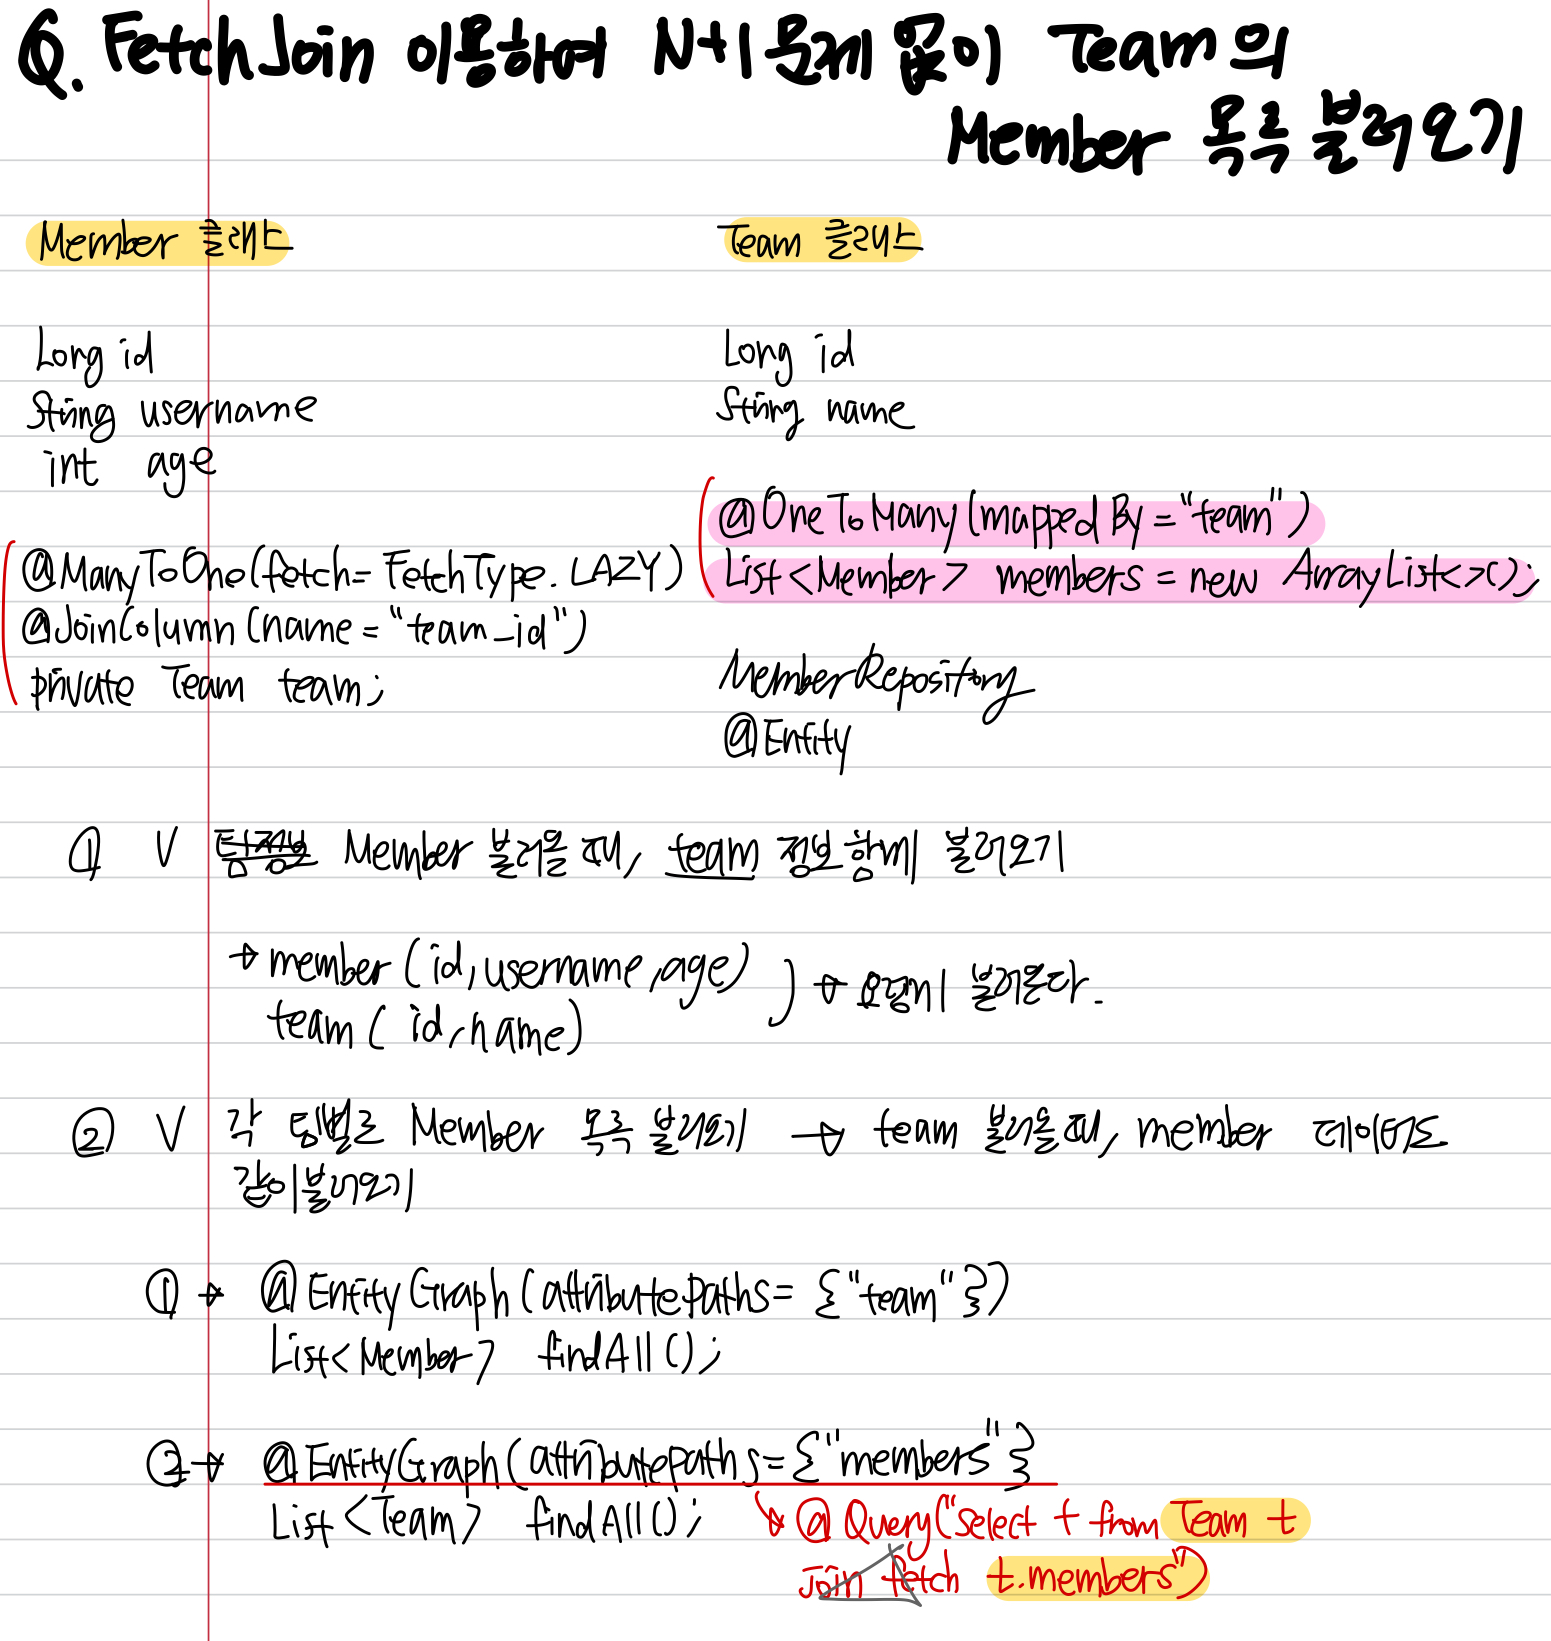 Q. FetchJoin 이용하여 N+1 문제 없이 Team의
Member 목록 불러오기
Member 클래스
Long id
String username
int age
@ManyToOne(fetch= FetchType.LAZY)
@JoinColumn(name = "team_id")
private Team team;
Team 클래스
Long id
String name
@OneToMany(mappedBy = "team")
List<Member> members = new ArrayList<>();
MemberRepository
@Entity
① V 팀정보 Member 불러올 때, team 정보 함께 불러오기
→ member (id, username, age)
team ( id, name) ) → 한번에 불러온다.
② V 각 팀별로 Member 목록 불러오기 → team 불러올 때, member 데이터도
같이 불러오기
① → @EntityGraph(attributePaths= {"team"})
List<Member> findAll();
② → @EntityGraph(attributePaths= {"members"}
List<Team> findAll();
↳ @Query("select t from Team t
join fetch t.members")